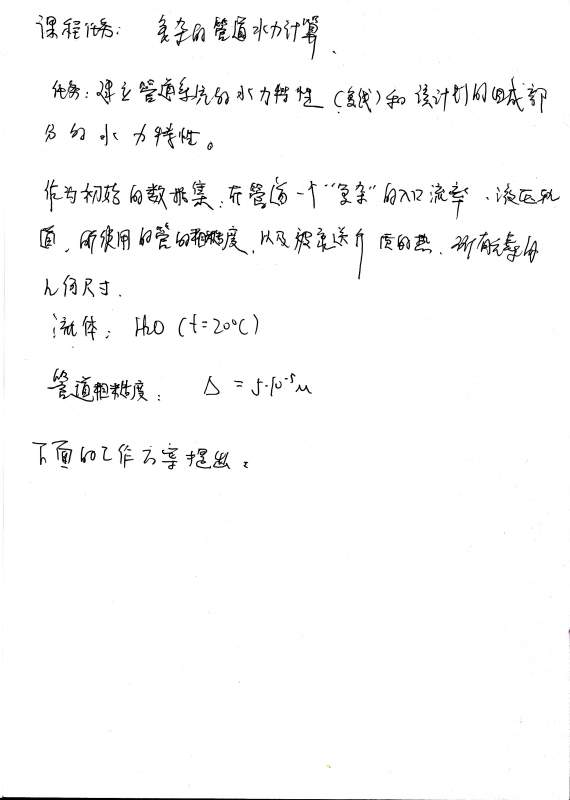 课程任务: 复杂的管道水力计算.
任务: 建立管道系统的水力特性 (复线) 和该计划的组成部
分的水力特性。
作为初始的数据集: 在管道一个“复杂”的入口流率、液压
面, 所使用的管的粗糙度, 以及被泵送介质的热, 所有元素的
几何尺寸.
流体: H2O (t=20°C)
管道粗糙度: Δ = 5·10⁻⁵ м
下面的工作方案提出: